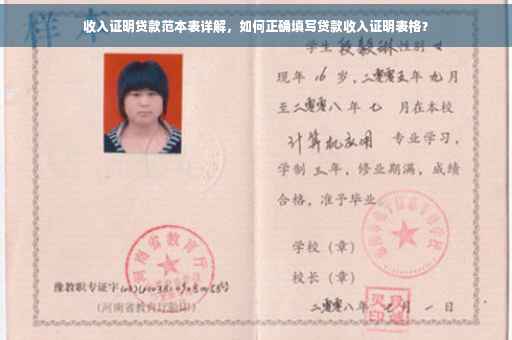 收入证明贷款范本表详解，如何正确填写贷款收入证明表格？
样本
学生段毅琳性别女
现年16岁，二零零五年九月
至二零零八年七月在本校
计算机应用 专业学习，
学制三年，修业期满，成绩
合格，准予毕业。
学校（章）
校长（章）
二零零八年七月一日
河南省教育厅
豫教职专证字
（河南省教育厅验印）